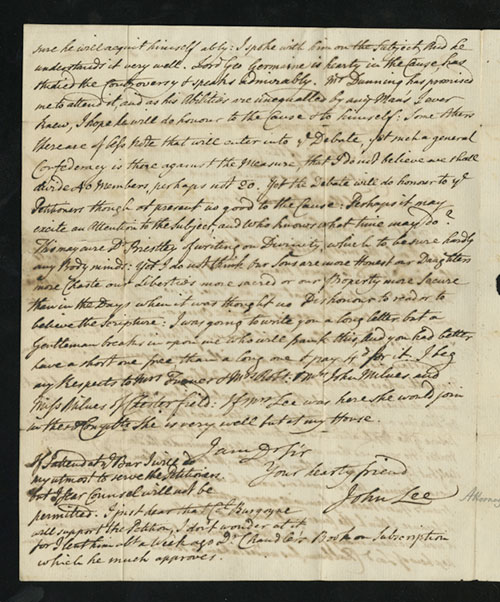 sure he will acquit himself ably: I spoke with him on the Subject, and he
understands it very well. Lord Geo Germaine is hearty in the Cause has
studied the Controversy & speaks admirably. Mr Dunning has promised
me to attend it, and as his Abilities are unequalled by any Man's I ever
knew, I hope he will do honour to the Cause & to himself: Some others
there are of less Note that will enter into ye Debate, yet such a general
Confederacy is there against the Measure that I do not believe we shall
divide 40 Members, perhaps not 20. Yet the Debate will do honour to ye
Petitioners though at present no good to the Cause: Perhaps it may
excite an Attention to the Subject and who knows what time may do?
This may cure Dr Priestley of writing on Divinity, which to be sure hardly
any Body minds: Yet I do not think our Sons are more Honest our Daughters
more Chaste our Liberties more sacred or our Property more Secure
then in the Days when it was thought no Dishonour to read or to
believe the Scripture: I was going to write you a long letter but a
Gentleman breaks in upon me who will frank this, and you had better
have a short one free than a long one & pay for it. I beg
my Respects to Mrs Turner & Mr John Milnes and
Miss Milnes of Chesterfield: If Mrs Lee was here she would join
in these She is very well but at my House.
I am Dr Sir
Your hearty friend
John Lee
If I attend at ye Bar I will do
my utmost to serve the Petitioners
but I fear Counsel will not be
permitted: I just hear that Burgoyne
will support the Petition, I don't wonder at it
for I lent him abt a Week ago Dr Chandler's Book on Subscription
which he much approves.
Attorney